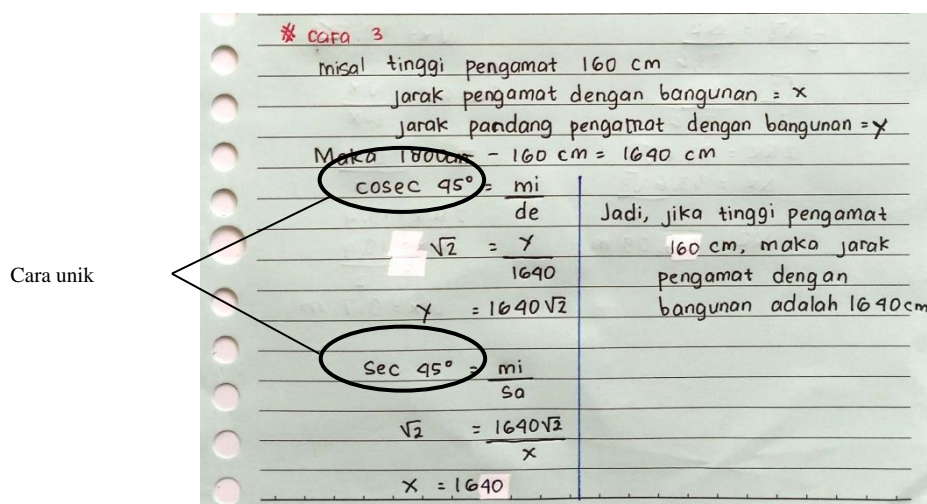 * cara 3
misal tinggi pengamat 160 cm
jarak pengamat dengan bangunan = x
jarak pandang pengamat dengan bangunan = y
Maka 1800cm - 160 cm = 1640 cm
cosec 45° = mi
de
√2 = y
1640
y = 1640√2
Sec 45° = mi
sa
√2 = 1640√2
x
x = 1640
Jadi, jika tinggi pengamat
160 cm, maka jarak
pengamat dengan
bangunan adalah 1640 cm
Cara unik